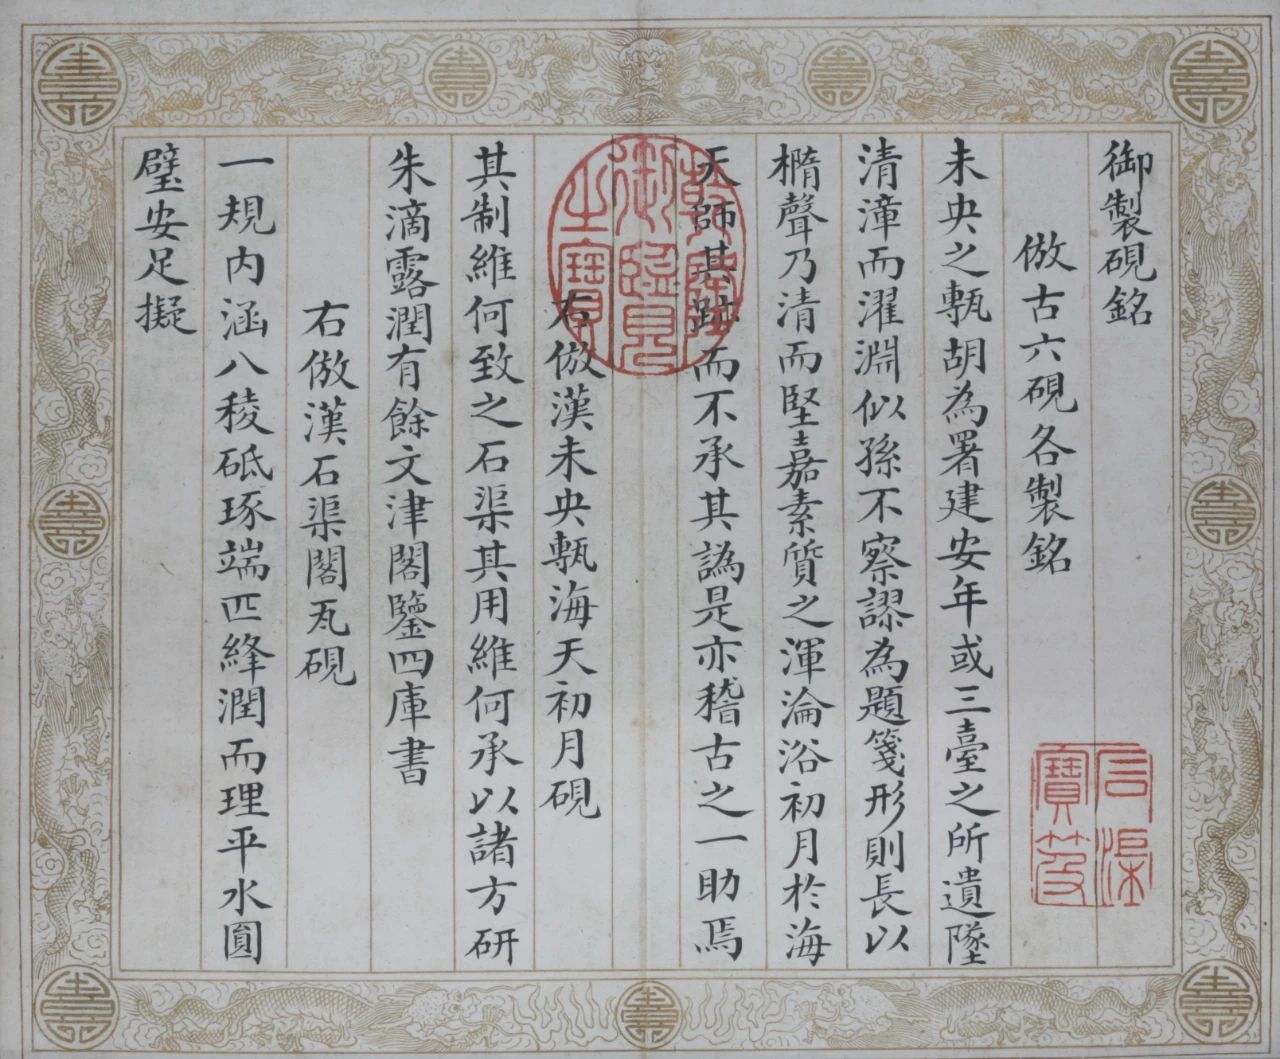 御製硯銘
倣古六硯各製銘
未央之甎胡為署建安年或三臺之所遺墜
清漳而濯淵似孫不察謬為題箋形則長以
橢聲乃清而堅嘉素質之渾淪浴初月於海
天師其跡而不承其譌是亦稽古之一助焉
右倣漢未央甎海天初月硯
其制維何致之石渠其用維何承以諸方研
朱滴露潤有餘文津閣鑒四庫書
右倣漢石渠閣瓦硯
一規內涵八稜砥琢端匹絳潤而理平水圓
璧安足擬
乾隆御覽之寶
石渠寶笈